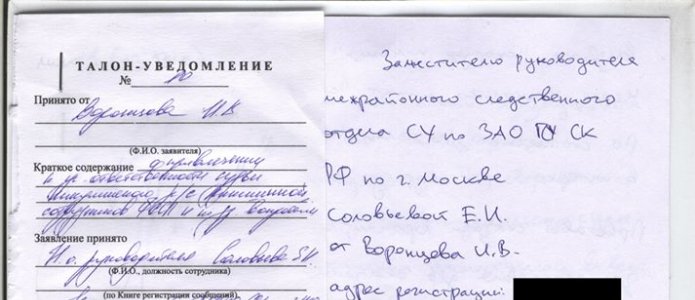 ТАЛОН-УВЕДОМЛЕНИЕ
№ 80
Принято от Воронцова И.В.
(Ф.И.О. заявителя)
Краткое содержание о привлечении
к уг. ответственности судьи
р/с
сотрудников
Заявление принято
И.о. руководителя Соловьева Е.И.
(Ф.И.О., должность сотрудника)
(по Книге регистрации сообщений)
Заместителю руководителя
межрайонного следственного
отдела СУ по ЗАО ГУ СК
РФ по г. Москве
Соловьевой Е.И.
от Воронцова И.В.
адрес регистрации: